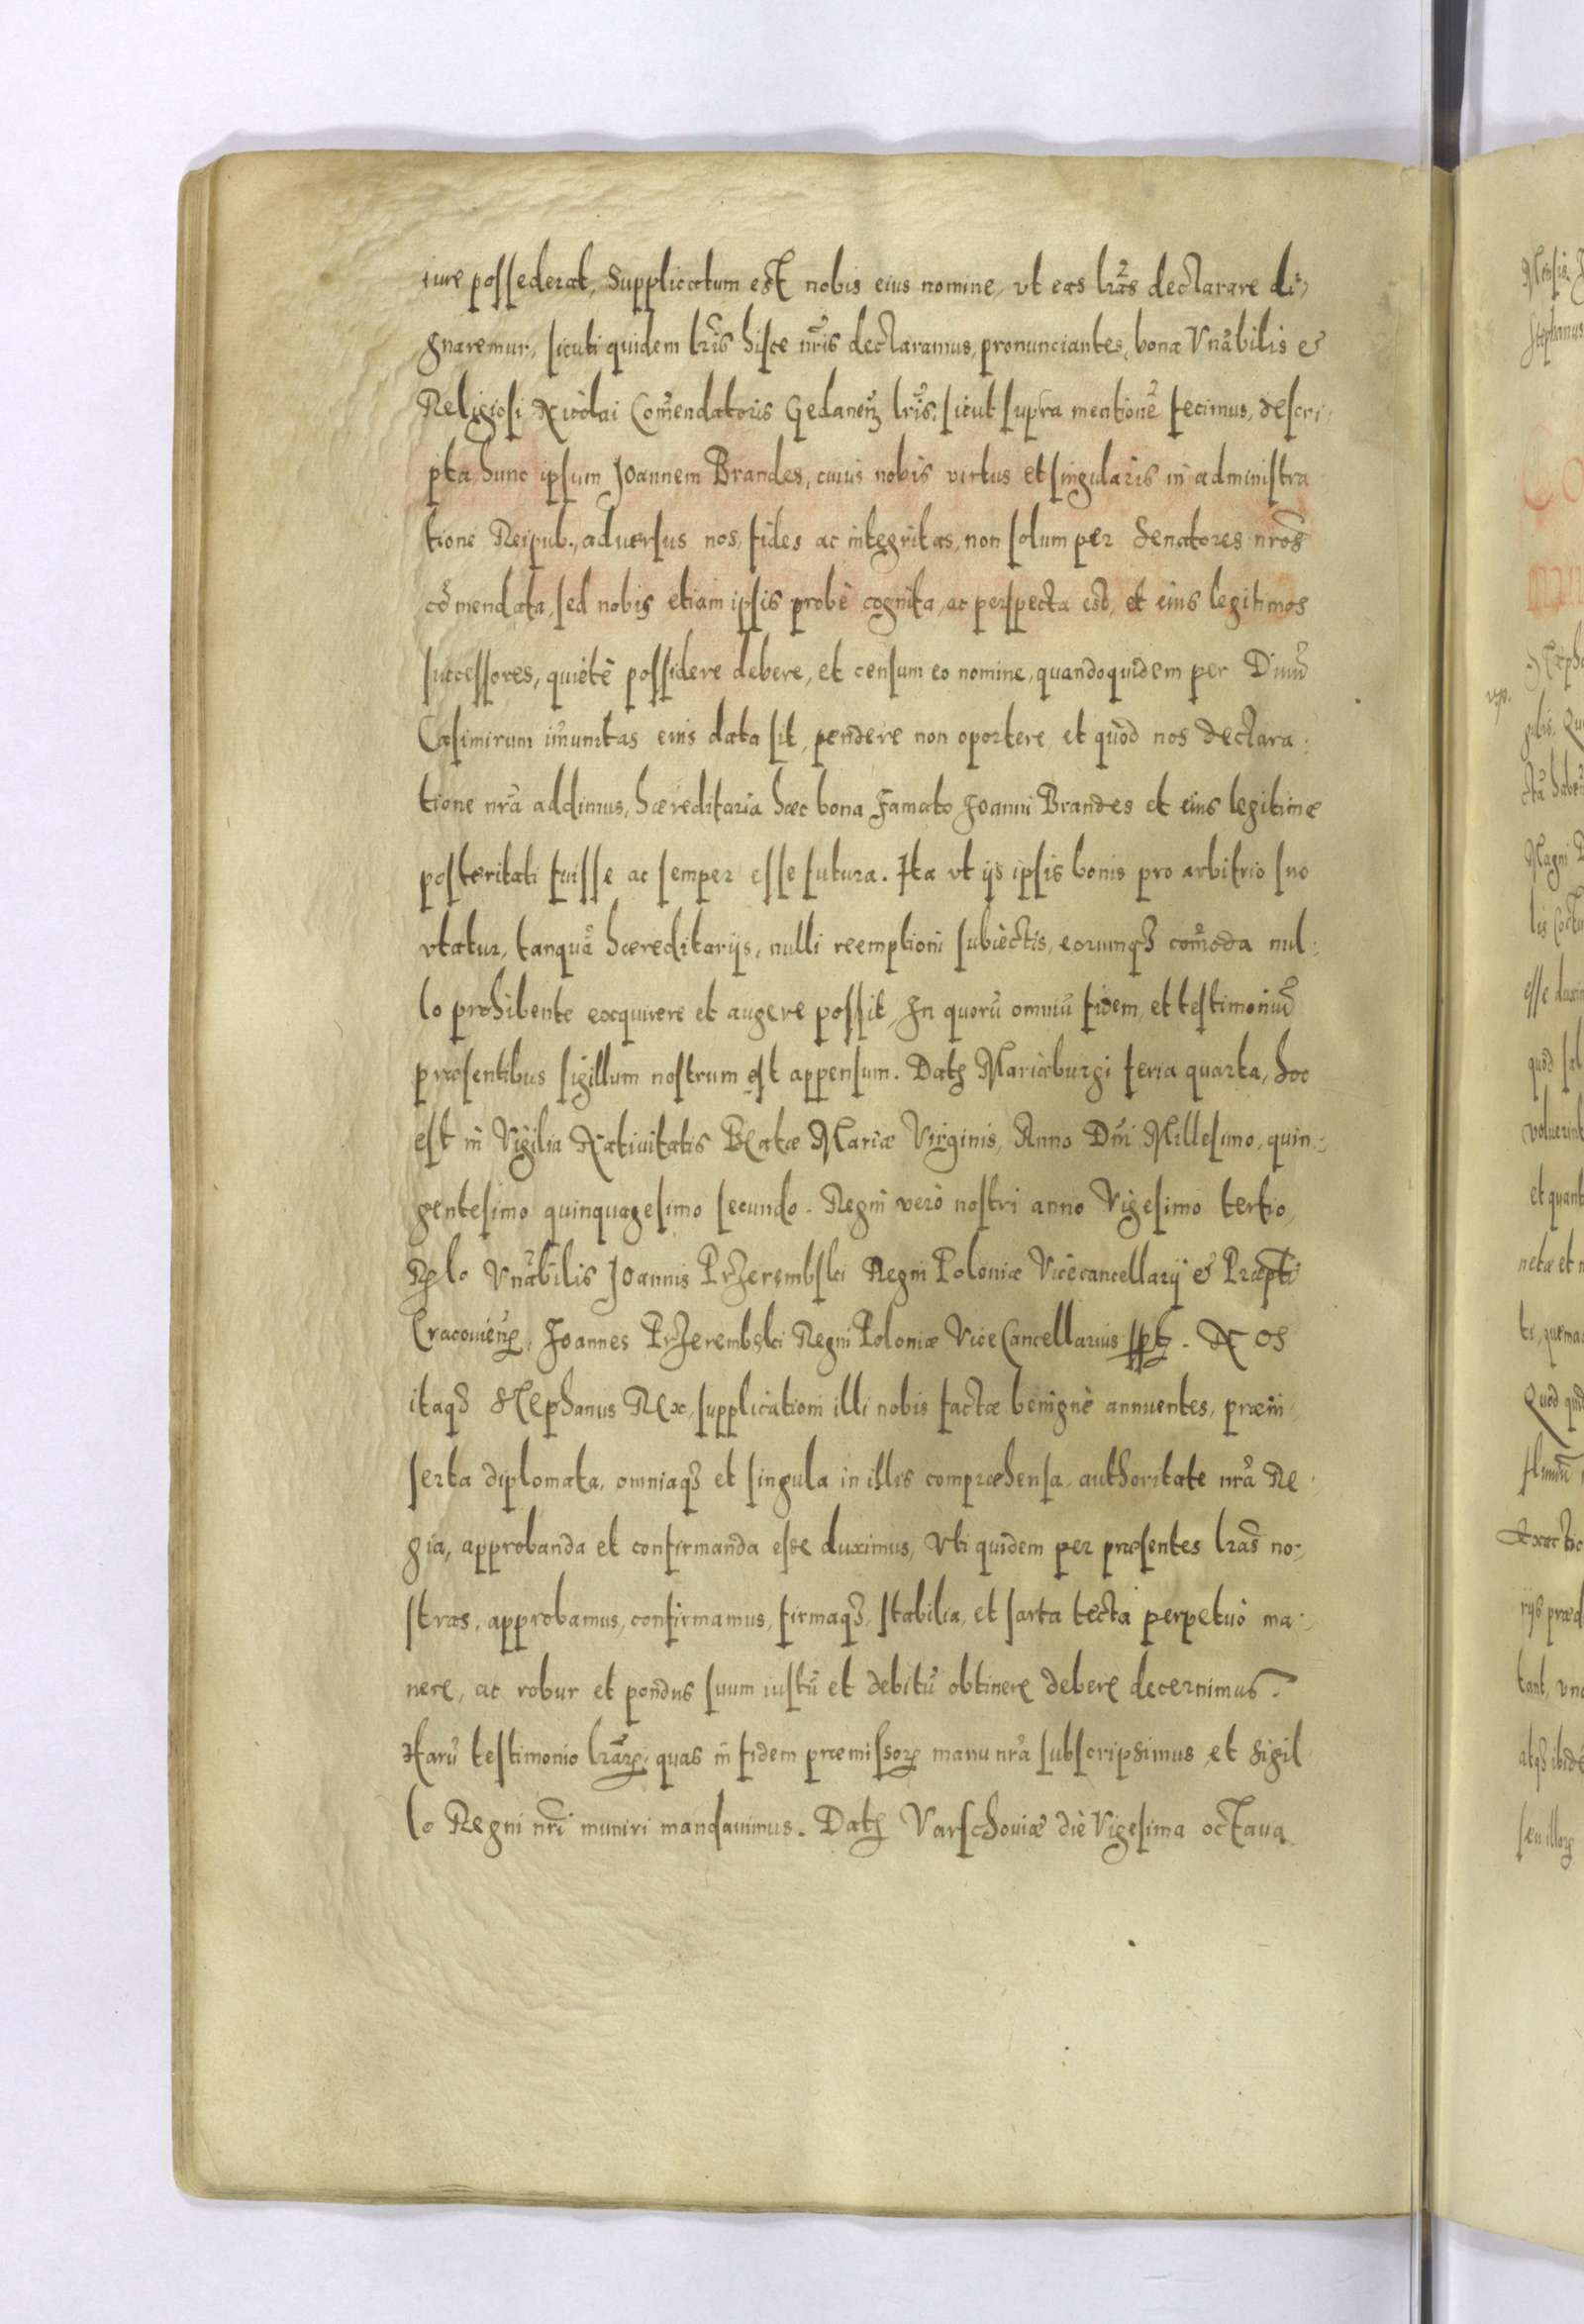 iure possederat, Supplicatum est nobis eius nomine, vt eas lr̃as declarare di-
gnaremur, sicuti quidem lr̃is hisce nr̃is declaramus, pronunciantes, bona Vnãbilis &
Religiosi Nicolai Com̃endatoris Gedaneñ lr̃is, sicut supra mentionẽ fecimus, descri-
pta, hunc ipsum Joannem Brandes, cuius nobis virtus et singularis in administra
tione Reipub., aduersus nos, fides ac integritas, non solum per Senatores nr̃os
cõmendata, sed nobis etiam ipsis probè cognita, ac perspecta est, et eius legitimos
successores, quietè possidere debere, et censum eo nomine, quandoquidem per Diuũ
Casimirum im̃unitas eius data sit, pendere non oportere, et quòd nos declara-
tione nr̃a addimus, hæreditaria hæc bona Famato Joanni Brandes et eius legitimæ
posteritati fuisse ac semper esse futura. Ita vt ijs ipsis bonis pro arbitrio suo
vtatur, tanquã hæreditarijs, nulli reemptioni subiectis, eorumqꝫ com̃oda nul-
lo prohibente exquirere et augere possit, In quorũ omniũ fidem, et testimoniũ
præsentibus sigillum nostrum est appensum. Datꝫ Mariæburgi feria quarta, hoc
est in Vigilia Natiuitatis Beatæ Mariæ Virginis, Anno Dñi Millesimo, quin-
gentesimo quinquagesimo secundo. Regni verò nostri anno Vigesimo tertio,
Rẽlo Vnãbilis Joannis Przerembski Regni Poloniæ Vicecancellarij & Præpti
Cracouieñ, Joannes Przerembski Regni Poloniæ ViceCancellarius sst. Nos
itaqꝫ Stephanus Rex, supplicationi illi nobis factæ benignè annuentes, præin-
serta diplomata, omniaqꝫ et singula in illis compræhensa, authoritate nr̃a Re-
gia, approbanda et confirmanda esse duximus, Vti quidem per præsentes lr̃as no-
stras, approbamus, confirmamus, firmaqꝫ, stabilia, et sarta tecta perpetuò ma-
nere, ac robur et pondus suum iustũ et debitũ obtinere debere decernimus.
Harũ testimonio lr̃arꝝ, quas in fidem præmissorꝝ manu nr̃a subscripsimus, et sigil
lo Regni nr̃i muniri mandauimus. Datꝫ Varschouiæ die Vigesima octaua